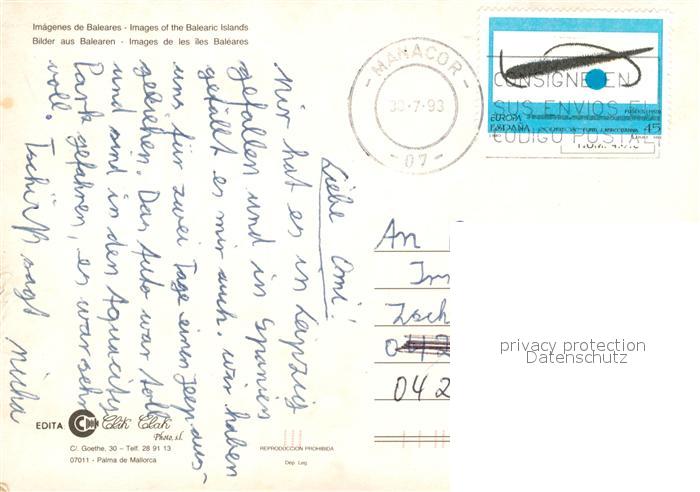 Imágenes de Baleares - Images of the Balearic Islands
Bilder aus Balearen - Images de les îles Baléares
MANACOR
30-7-93
-07-
CONSIGNE EN
SUS ENVIOS EL
CODIGO POSTAL
EUROPA
ESPAÑA
45
Liebe Omi!
Mir hat es in Leipzig
gefallen und in Spanien
gefällt es mir auch. Wir haben
uns für zwei Tage einen Jeep aus-
geliehen. Das Auto war toll
und sind in den Aquacity
Park gefahren, es war sehr
voll. Tschüß sagt Micha
An
Im
Zsch
042
042
privacy protection
Datenschutz
EDITA
Clik Clak
Photo, s.l.
C/. Goethe, 30 - Telf. 28 91 13
07011 - Palma de Mallorca
REPRODUCCION PROHIBIDA
Dep. Leg.